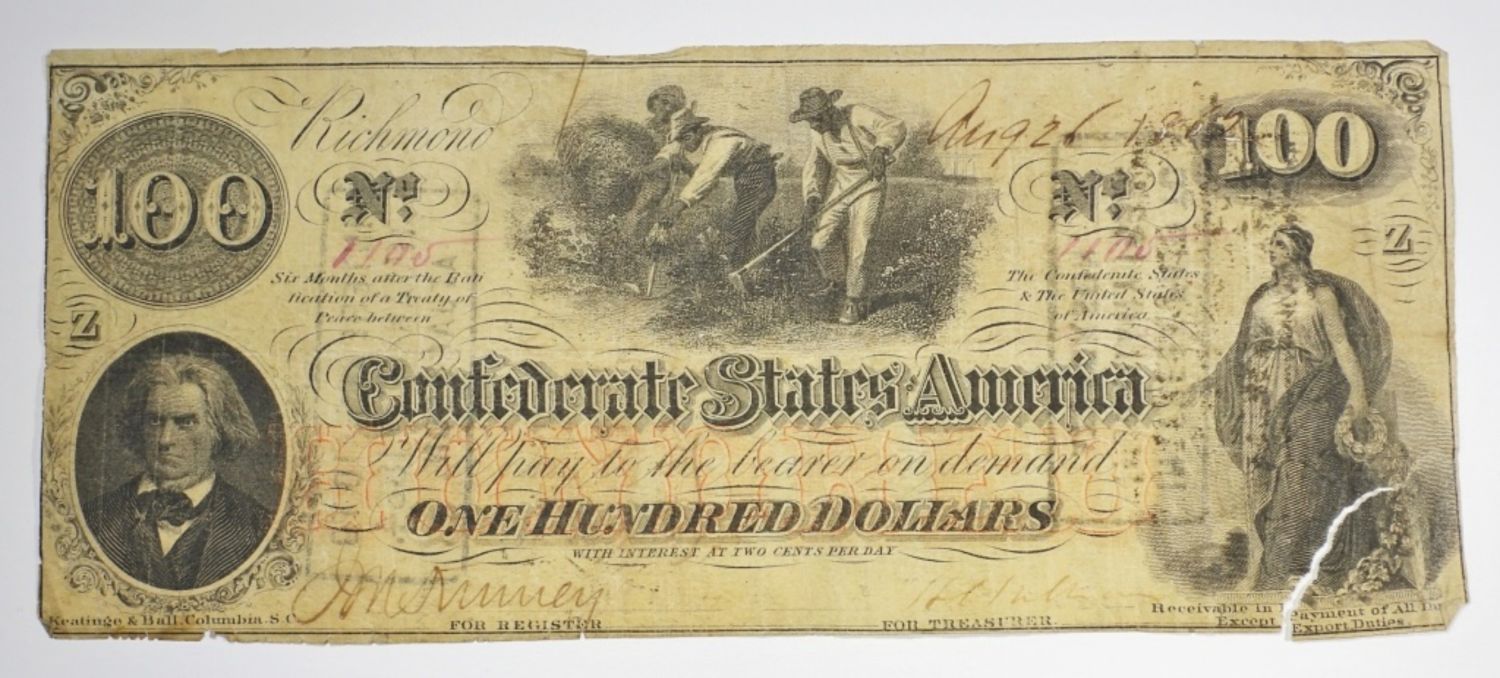 Richmond
Aug 26 1862
100
100
Nº
Nº
1195
1195
Six Months after the Rati
fication of a Treaty of
Peace between
The Confederate States
& The United States
of America
Z
Z
Confederate States America
Will pay to the bearer on demand
HUNDRED
ONE HUNDRED DOLLARS
WITH INTEREST AT TWO CENTS PER DAY
Keatinge & Ball, Columbia, S.C.
FOR REGISTER
FOR TREASURER.
Receivable in Payment of All Du
Except Export Duties.